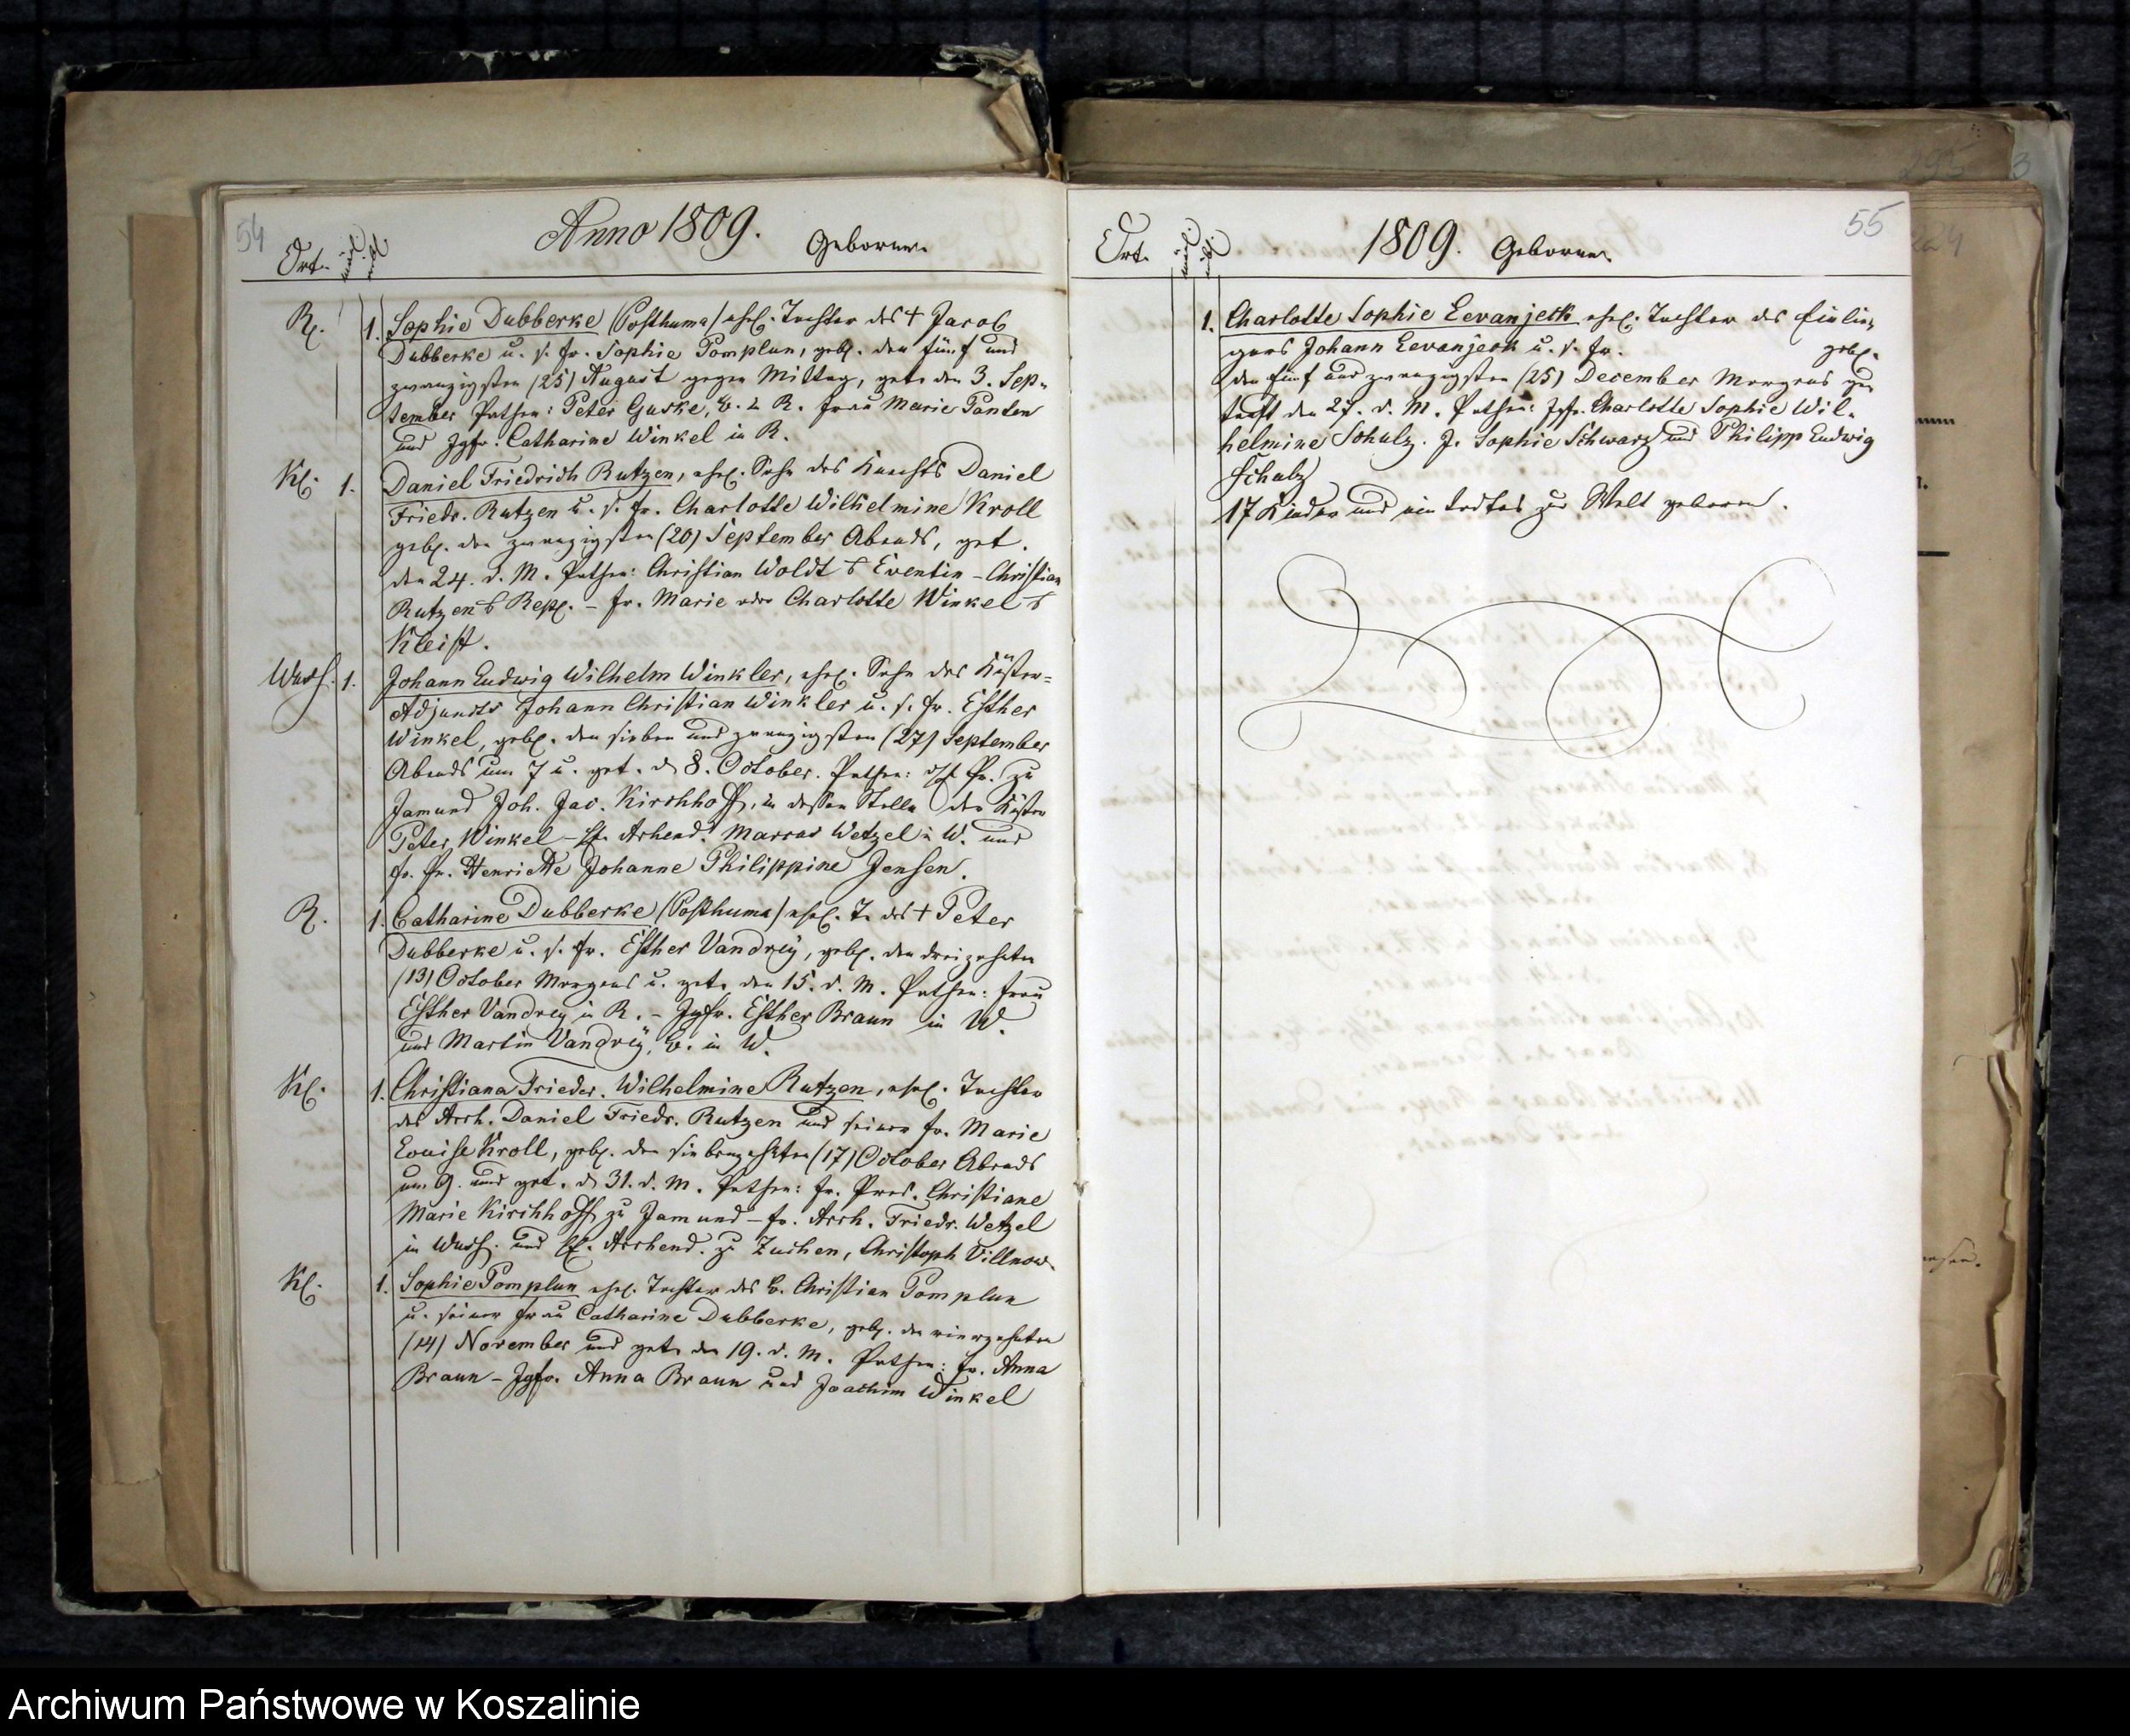 54
Anno 1809.
Ort. männl. weibl. Geborne.
R. 1. Sophie Dubberke (Posthuma) ehel. Tochter des † Jacob
Dubberke u. s. Fr. Sophie Pomplun, geb. den fünf und
zwanzigsten (25) August gegen Mittag, get. den 3. Sep-
tember Pathen: Peter Guske, B. z R. Frau Marie Panten
und Jgfr. Catharine Winkel in R.
Kl. 1. Daniel Friedrich Rutzen, ehel. Sohn des Knechts Daniel
Friedr. Rutzen u. s. Fr. Charlotte Wilhelmine Kroll
geb. den zwanzigsten (20) September Abends, get.
den 24. d. M. Pathen: Christian Woldt Eventin – Christian
Rutzen Repk. – Fr. Marie oder Charlotte Winkel
Kleist.
Wuss. 1. Johann Ludwig Wilhelm Winkler, ehel. Sohn des Küster-
Adjuncts Johann Christian Winkler u. s. Fr. Esther
Winkel, geb. den sieben und zwanzigsten (27) September
Abends um 7 u. get. d 8. October. Pathen: Pr. zu
Jamund Joh. Jac. Kirchhoff, in dessen Stelle der Küster
Peter Winkel – H. Arhend. Marcus Wetzel in W. und
Fr. Pr. Henriette Johanne Philippine Jensen.
R. 1. Catharine Dubberke (Posthuma) ehel. T. des † Peter
Dubberke u. s. Fr. Esther Vandrey, geb. den dreizehnten
(13) October Morgens u. get. den 15. d. M. Pathen: Frau
Esther Vandrey in R. – Jgfr. Esther Braun in W.
und Martin Vandrey, B. in W.
Kl. 1. Christiana Frieder. Wilhelmine Rutzen, ehel. Tochter
des Arrh. Daniel Friedr. Rutzen und seiner Fr. Marie
Louise Kroll, geb. den siebenzehnten (17) October Abends
um 9. und get. d 31. d. M. Pathen: Fr. Pred. Christiane
Marie Kirchhoff zu Jamund – Fr. Arrh. Friedr. Wetzel
in Wuss. und H. Arrhend. zu Zuchen, Christoph Villnow.
Kl. 1. Sophie Pomplun ehel. Tochter des B. Christian Pomplun
u. seiner Frau Catharine Dubberke, geb. den vierzehnten
(14) November und get. den 19. d. M. Pathen: Fr. Anna
Braun – Jgfr. Anna Braun und Joachim Winkel
55
Ort. männl. weibl. 1809. Geborne.
1. Charlotte Sophie Levanjeck ehel. Tochter des Einlie-
gers Johann Levanjeck u. s. Fr. geb.
den fünf und zwanzigsten (25) December Morgens ge-
tauft den 27. d. M. Pathen: Jgfr. Charlotte Sophie Wil-
helmine Schulz. J. Sophie Schwarz und Philipp Ludwig
Schulz
17 Kinder und ein todtes zur Welt geboren.
Archiwum Państwowe w Koszalinie